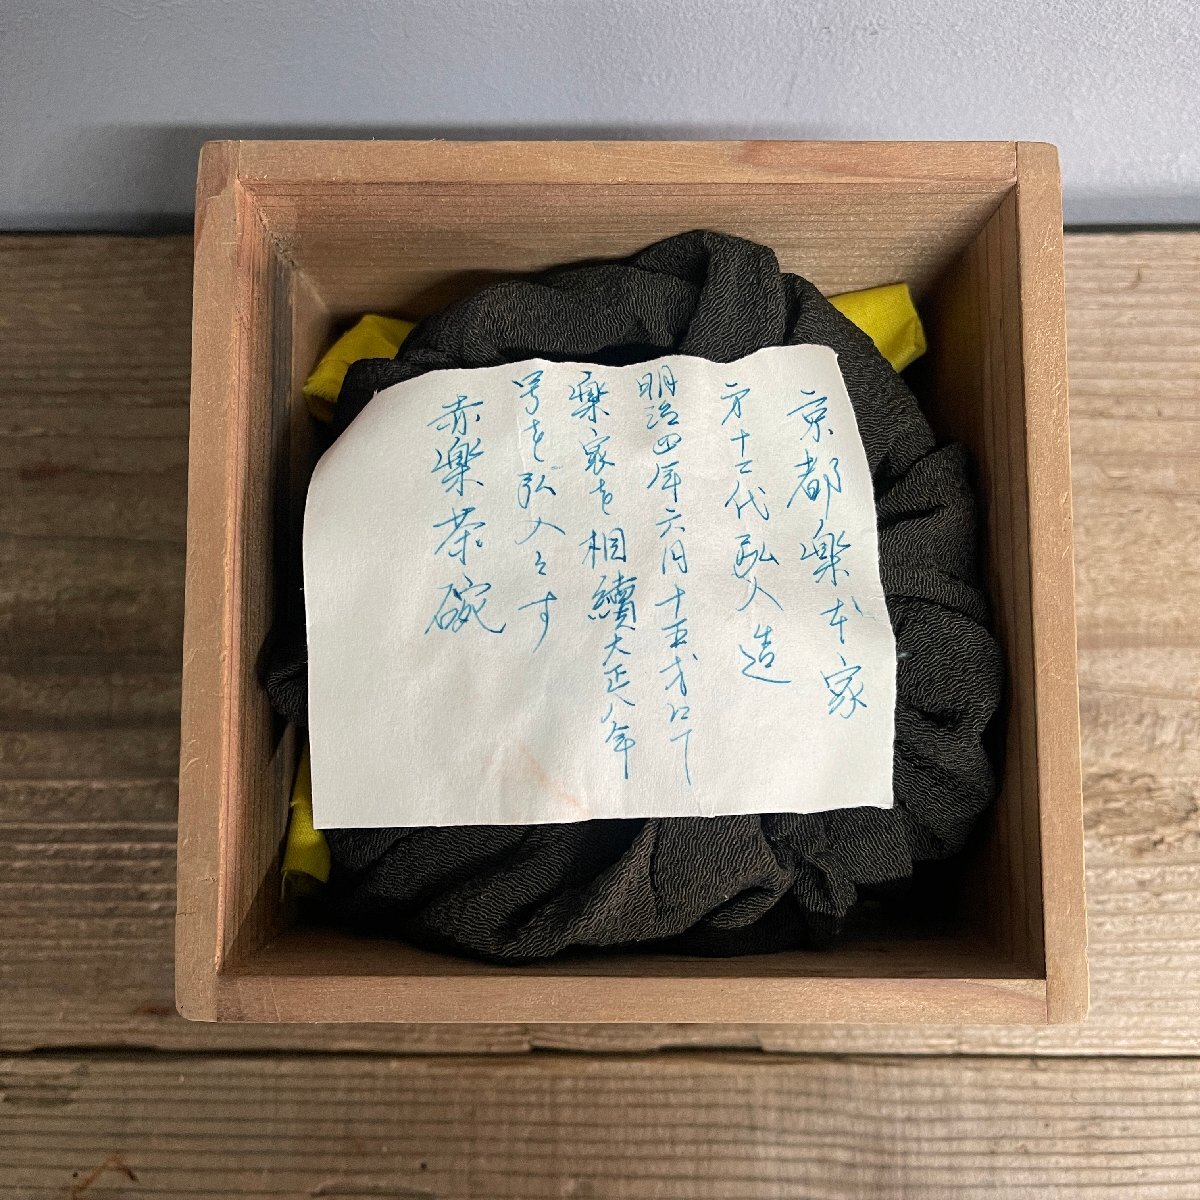 京都楽本家
第十二代弘入造
明治四年六月十五才にて
楽家を相續大正八年
号を弘入とす
赤楽茶碗